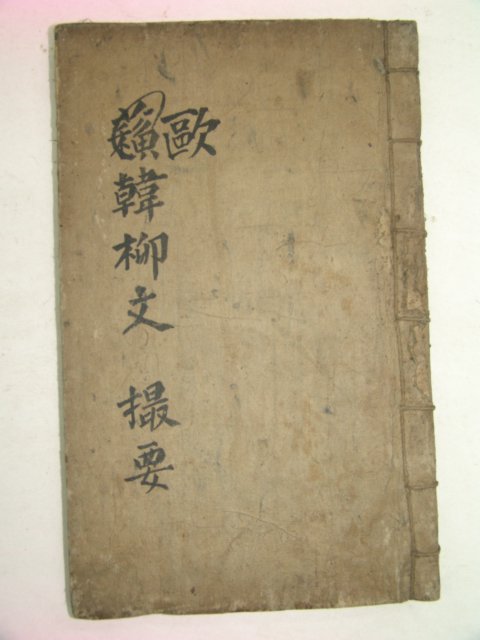 歐
蘓韓柳文 撮要